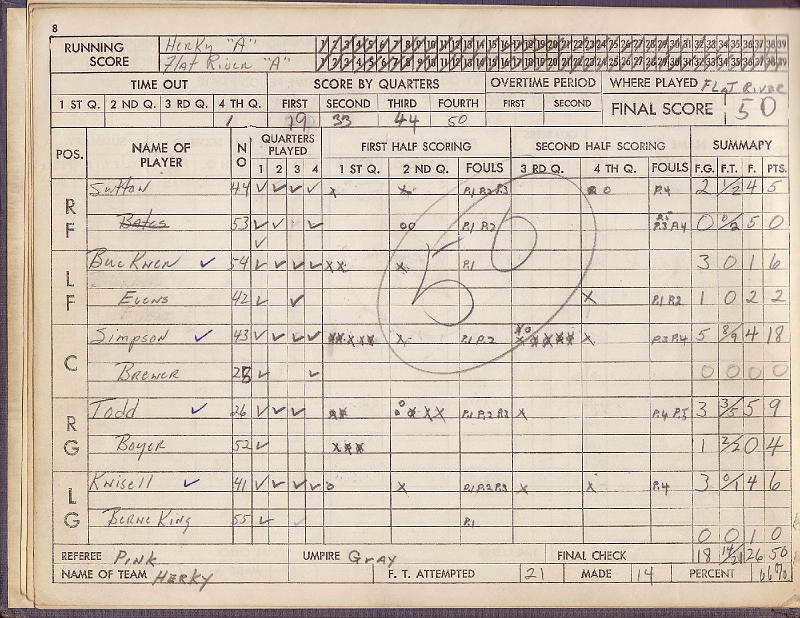 8
RUNNING SCORE HERKY "A" 1 2 3 4 5 6 7 8 9 10 11 12 13 14 15 16 17 18 19 20 21 22 23 24 25 26 27 28 29 30 31 32 33 34 35 36 37 38 39
FLAT RIVER "A" 1 2 3 4 5 6 7 8 9 10 11 12 13 14 15 16 17 18 19 20 21 22 23 24 25 26 27 28 29 30 31 32 33 34 35 36 37 38 39
TIME OUT SCORE BY QUARTERS OVERTIME PERIOD WHERE PLAYED FLAT RIVER
1 ST Q. 2 ND Q. 3 RD Q. 4 TH Q. FIRST SECOND THIRD FOURTH FIRST SECOND FINAL SCORE 50
1 19 33 44 50
POS. NAME OF PLAYER NO QUARTERS PLAYED FIRST HALF SCORING SECOND HALF SCORING SUMMAPY
1 2 3 4 1 ST Q. 2 ND Q. FOULS 3 RD Q. 4 TH Q. FOULS F.G. F.T. F. PTS.
RF Sutton 44 ✓ ✓ ✓ ✓ x x P.1 P.2 P.3 O P.4 2 1/2 4 5
Bates 53 ✓ ✓ ✓ oo P.1 P.2 P.5 P.3 P.4 0 0/2 5 0
✓
LF BUCKNER ✓ 54 ✓ ✓ ✓ ✓ xx x P.1 3 0 1 6
EVENS 42 ✓ ✓ x P.1 P.2 1 0 2 2
C SIMPSON ✓ 43 ✓ ✓ ✓ ✓ xxxxx x P.1 P.2 xo xxxxx x P.3 P.4 5 8/9 4 18
BREWER 28 ✓ ✓ 0 0 0 0
RG Todd ✓ 26 ✓ ✓ ✓ xx o o xx P.1 P.2 P.3 x P.4 P.5 3 3/5 5 9
Boyer 52 ✓ xxx 1 2/2 0 4
LG Knisell ✓ 41 ✓ ✓ ✓ ✓ o x P.1 P.2 P.3 x x P.4 3 0/1 4 6
BERNE KING 55 ✓ P.1 0 0 1 0
50
REFEREE PINK UMPIRE GRAY FINAL CHECK 18 14/21 26 50
NAME OF TEAM HERKY F. T. ATTEMPTED 21 MADE 14 PERCENT 66%